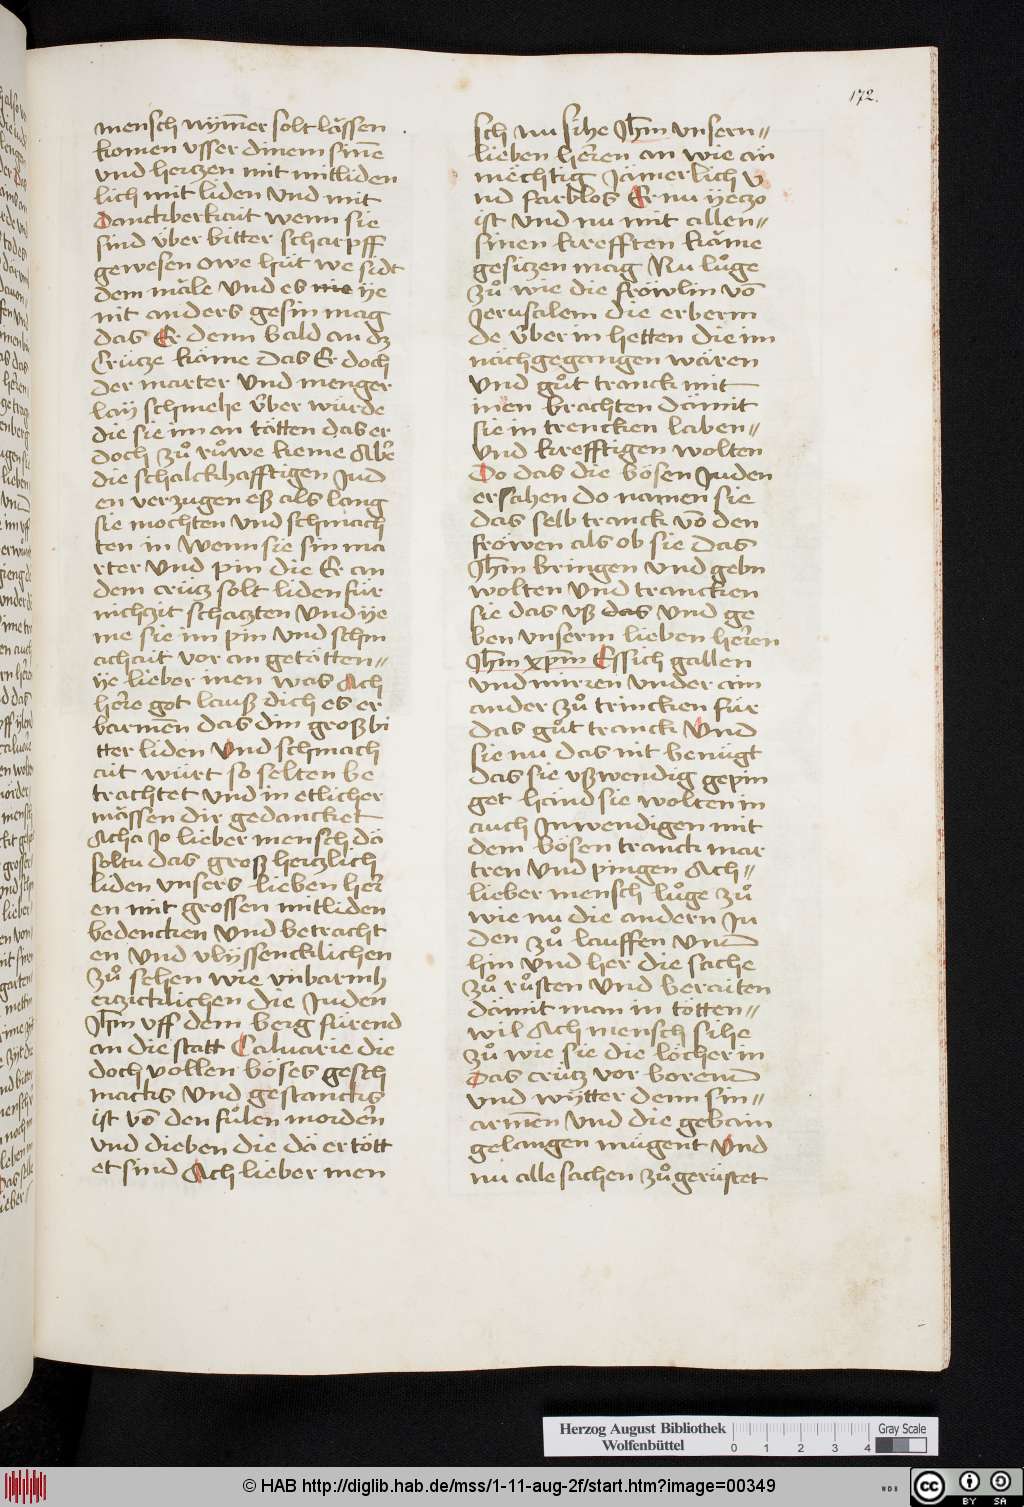 172.
mensch nym̄er solt lässen
komen vsser dinem sin̄e
vnd hertzen mit mitliden
lich mit liden Vnd mit
Danckberkait wenn sie
sind über bitter scharpff
gewesen owe hüt we sidt
dem mäle Vnd es nie ye
nit anders gesin mag
das Er denn bald an dz
Crütze käme das Er doch
der marter Vnd menger
lay schmehe über würde
die sie im an tötten das er
doch zů růwe keme Aber
die schalckhafftigen Jud
en verzugen eß als lang
sie mochten Vnd schmach
ten in Wenn sie sin ma
rter Vnd pin die Er an
dem crütz solt liden für
nichzit schatzten Vnd ye
me sie im pin Vnd schm
achait vor an getötten〃
ye lieber inen was Ach
here got lauß dich es er
barmen das din groß bi
tter liden Vnd schmach
ait würt so selten be
trachtet Vnd in etlicher
mässen dir gedancket
Acha Jo lieber mensch dä
soltu das groß hertzlich
liden vnsers lieben her
en mit grossen mitliden
bedencken Vnd betracht
en Vnd vlyssencklichen
zů sehen wie vnbarmh
ertzicklichen die Juden
Jh̄m vff dem berg fürend
an die statt Caluarie die
doch vollen böses gesch
macks Vnd gestancks
ist vō den fůlen morder̄n
vnd dieben die dä ertött
et sind Ach lieber men
sch nu sihe Jh̄m vnsern〃
lieben heren an wie ān
mechtig Jämerlich v
nd farblos Er nu yetzo
ist Vnd nu mit allen〃
sinen krefften käme
gesitzen mag Nu lůge
zů wie die fröwlin vō
Jerusalem die erberm
de über in hetten die im
nächgegangen wären
Vnd gůt tranck mit
inen brachten dämit
sie in trencken laben〃
Vnd krefftigen wolten
Do das die bösen Juden
ersahen do namen sie
das selb tranck vō den
fröwen als ob sie das
Jh̄m bringen Vnd gebn
wolten Vnd trancken
sie das vß das Vnd ge
ben vnserm lieben heren
Jh̄m xp̄m Essich gallen
vnd mirren vnder ain
ander zů trincken für
das gůt tranck Vnd
sie nu das nit benügt
das sie vßwendig gepin
get händ sie wolten in
auch Jnwendigen mit
dem bösen tranck mar
tren Vnd pingen Ach〃
lieber mensch lůge zů
wie nu die andern Ju
den zů lauffen Vnnd
hin Vnd her die sache
zů růsten Vnd beraiten
dämit man in tötten〃
wil Ach mensch sihe
zů wie sie die löcher in
Das crütz vor borend
vnd wytter denn sin〃
armen Vnd die gebain
gelangen mügent Vnd
nu alle sachen zůgerüstet
Herzog August Bibliothek
Wolfenbüttel
0 1 2 3 4
Gray Scale
© HAB http://diglib.hab.de/mss/1-11-aug-2f/start.htm?image=00349
WDB
cc BY SA